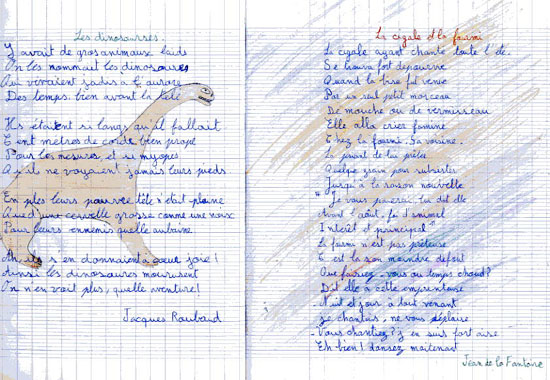 Les dinosaures.
Y avait de gros animaux laids
On les nommait les dinosaures
Qui vivaient jadis à l'aurore
Des temps bien avant la télé
Ils étaient si longs qu'il fallait
Cent mètres de corde bien propre
Pour les mesurer et si myopes
Qu'ils ne voyaient jamais leurs pieds
En plus leurs pauvre tête n'était pleine
Que d'une cervelle grosse comme une noix
Pour leurs ennemis quelle aubaine
Ah, ils s'en donnaient à coeur joie!
Ainsi les dinosaures moururent
On n'en voit plus, quelle aventure!
Jacques Roubaud
La cigale et la fourmi
La cigale ayant chanté toute l'été.
Se trouva fort dépourvue
Quand la bise fut venue
Pas un seul petit morceau
De mouche ou de vermisseau
Elle alla crier famine
Chez la fourmi. Sa voisine.
La priant de lui prêter
Quelque grain pour subsister
Jusqu'à la saison nouvelle
"Je vous paierai, lui dit elle
Avant l'août, foi d'animal
Interêt et principal"
La fourmi n'est pas prêteuse
C'est la son moindre défaut
Que faisiez-vous au temps chaud?
Dit elle à cette emprunteuse
Nuit et jour à tout venant
je chantais, ne vous déplaise
-Vous chantiez? j'en suis fort aise
Eh bien! dansez maitenant
Jean de la Fontaine